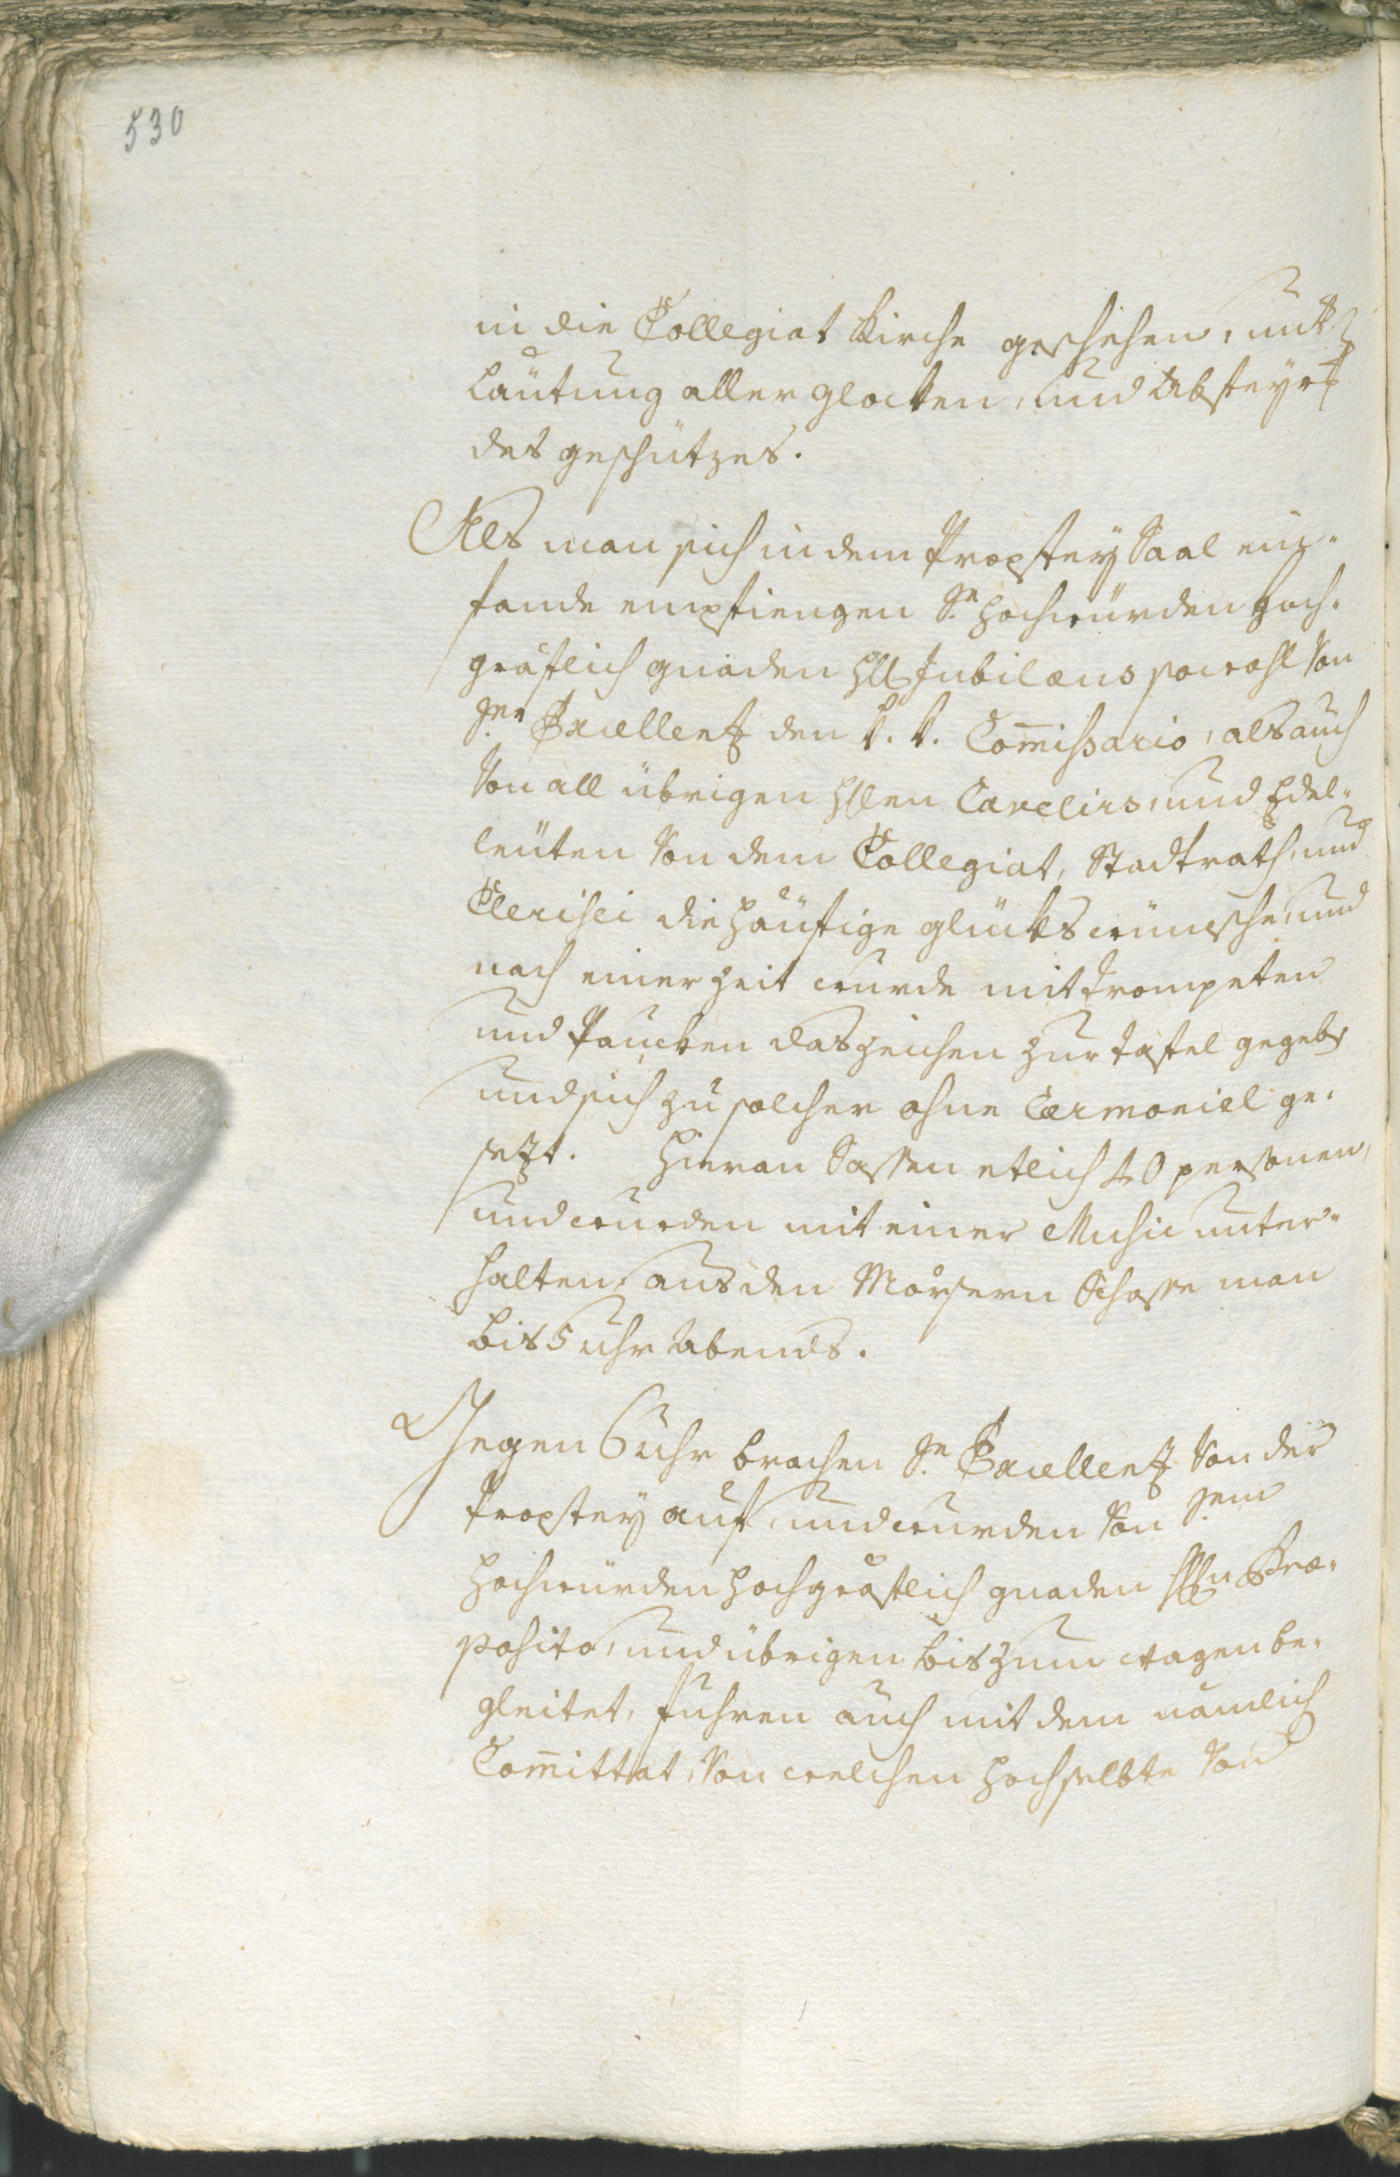 530
in die Collegiat Kirche geschehen, unter
Läutung aller glocken, und Abfeyer
des geschützes.
Als man sich in dem Propstey Saal ein-
fande empfiengen Se hochwürden hoch-
gräflich gnaden H. Jubilæus sowohl von
Sr Excellenz den k. k. Com̄issario, als auch
von all übrigen Hllen Cavelirs, und Edel-
leüten von dem Collegiat, Stadtrath, und
Clerisei die häufige glückswünsche, und
nach einer zeit wurde mit Trompeten
und Paucken das zeichen zur tafel gegeben
und sich zu solcher ohne Cermoniel ge-
sezt. Hieran Sassen etlich 40 personen,
und wurden mit einer Music unter-
halten, aus den Mörsern Schosse man
bis 5 uhr Abends.
Gegen 6 uhr brachen Se Excellenz von der
Propstey auf, und wurden von Sr
hochwürden hochgräflich gnaden Hlln Præ-
posito, und übrigen bis zum wagen be-
gleitet, fuhren auch mit dem nämlich
Com̄ittat, von welchen hochselbte von